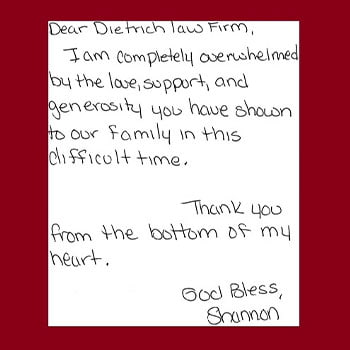 Dear Dietrich law Firm,
I am completely overwhelmed
by the love, support, and
generosity you have shown
to our family in this
difficult time.
Thank you
from the bottom of my
heart.
God Bless,
Shannon